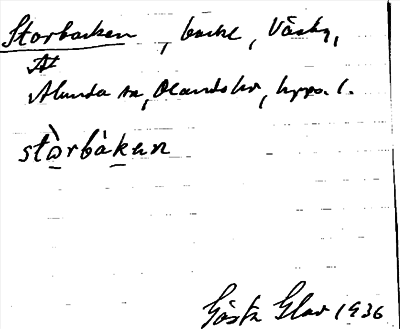 Storbacken, backe, Väsby,
At
Alunda sn, Olands hd, Upps. l.
stòrbàkan
Gösta Glav 1936